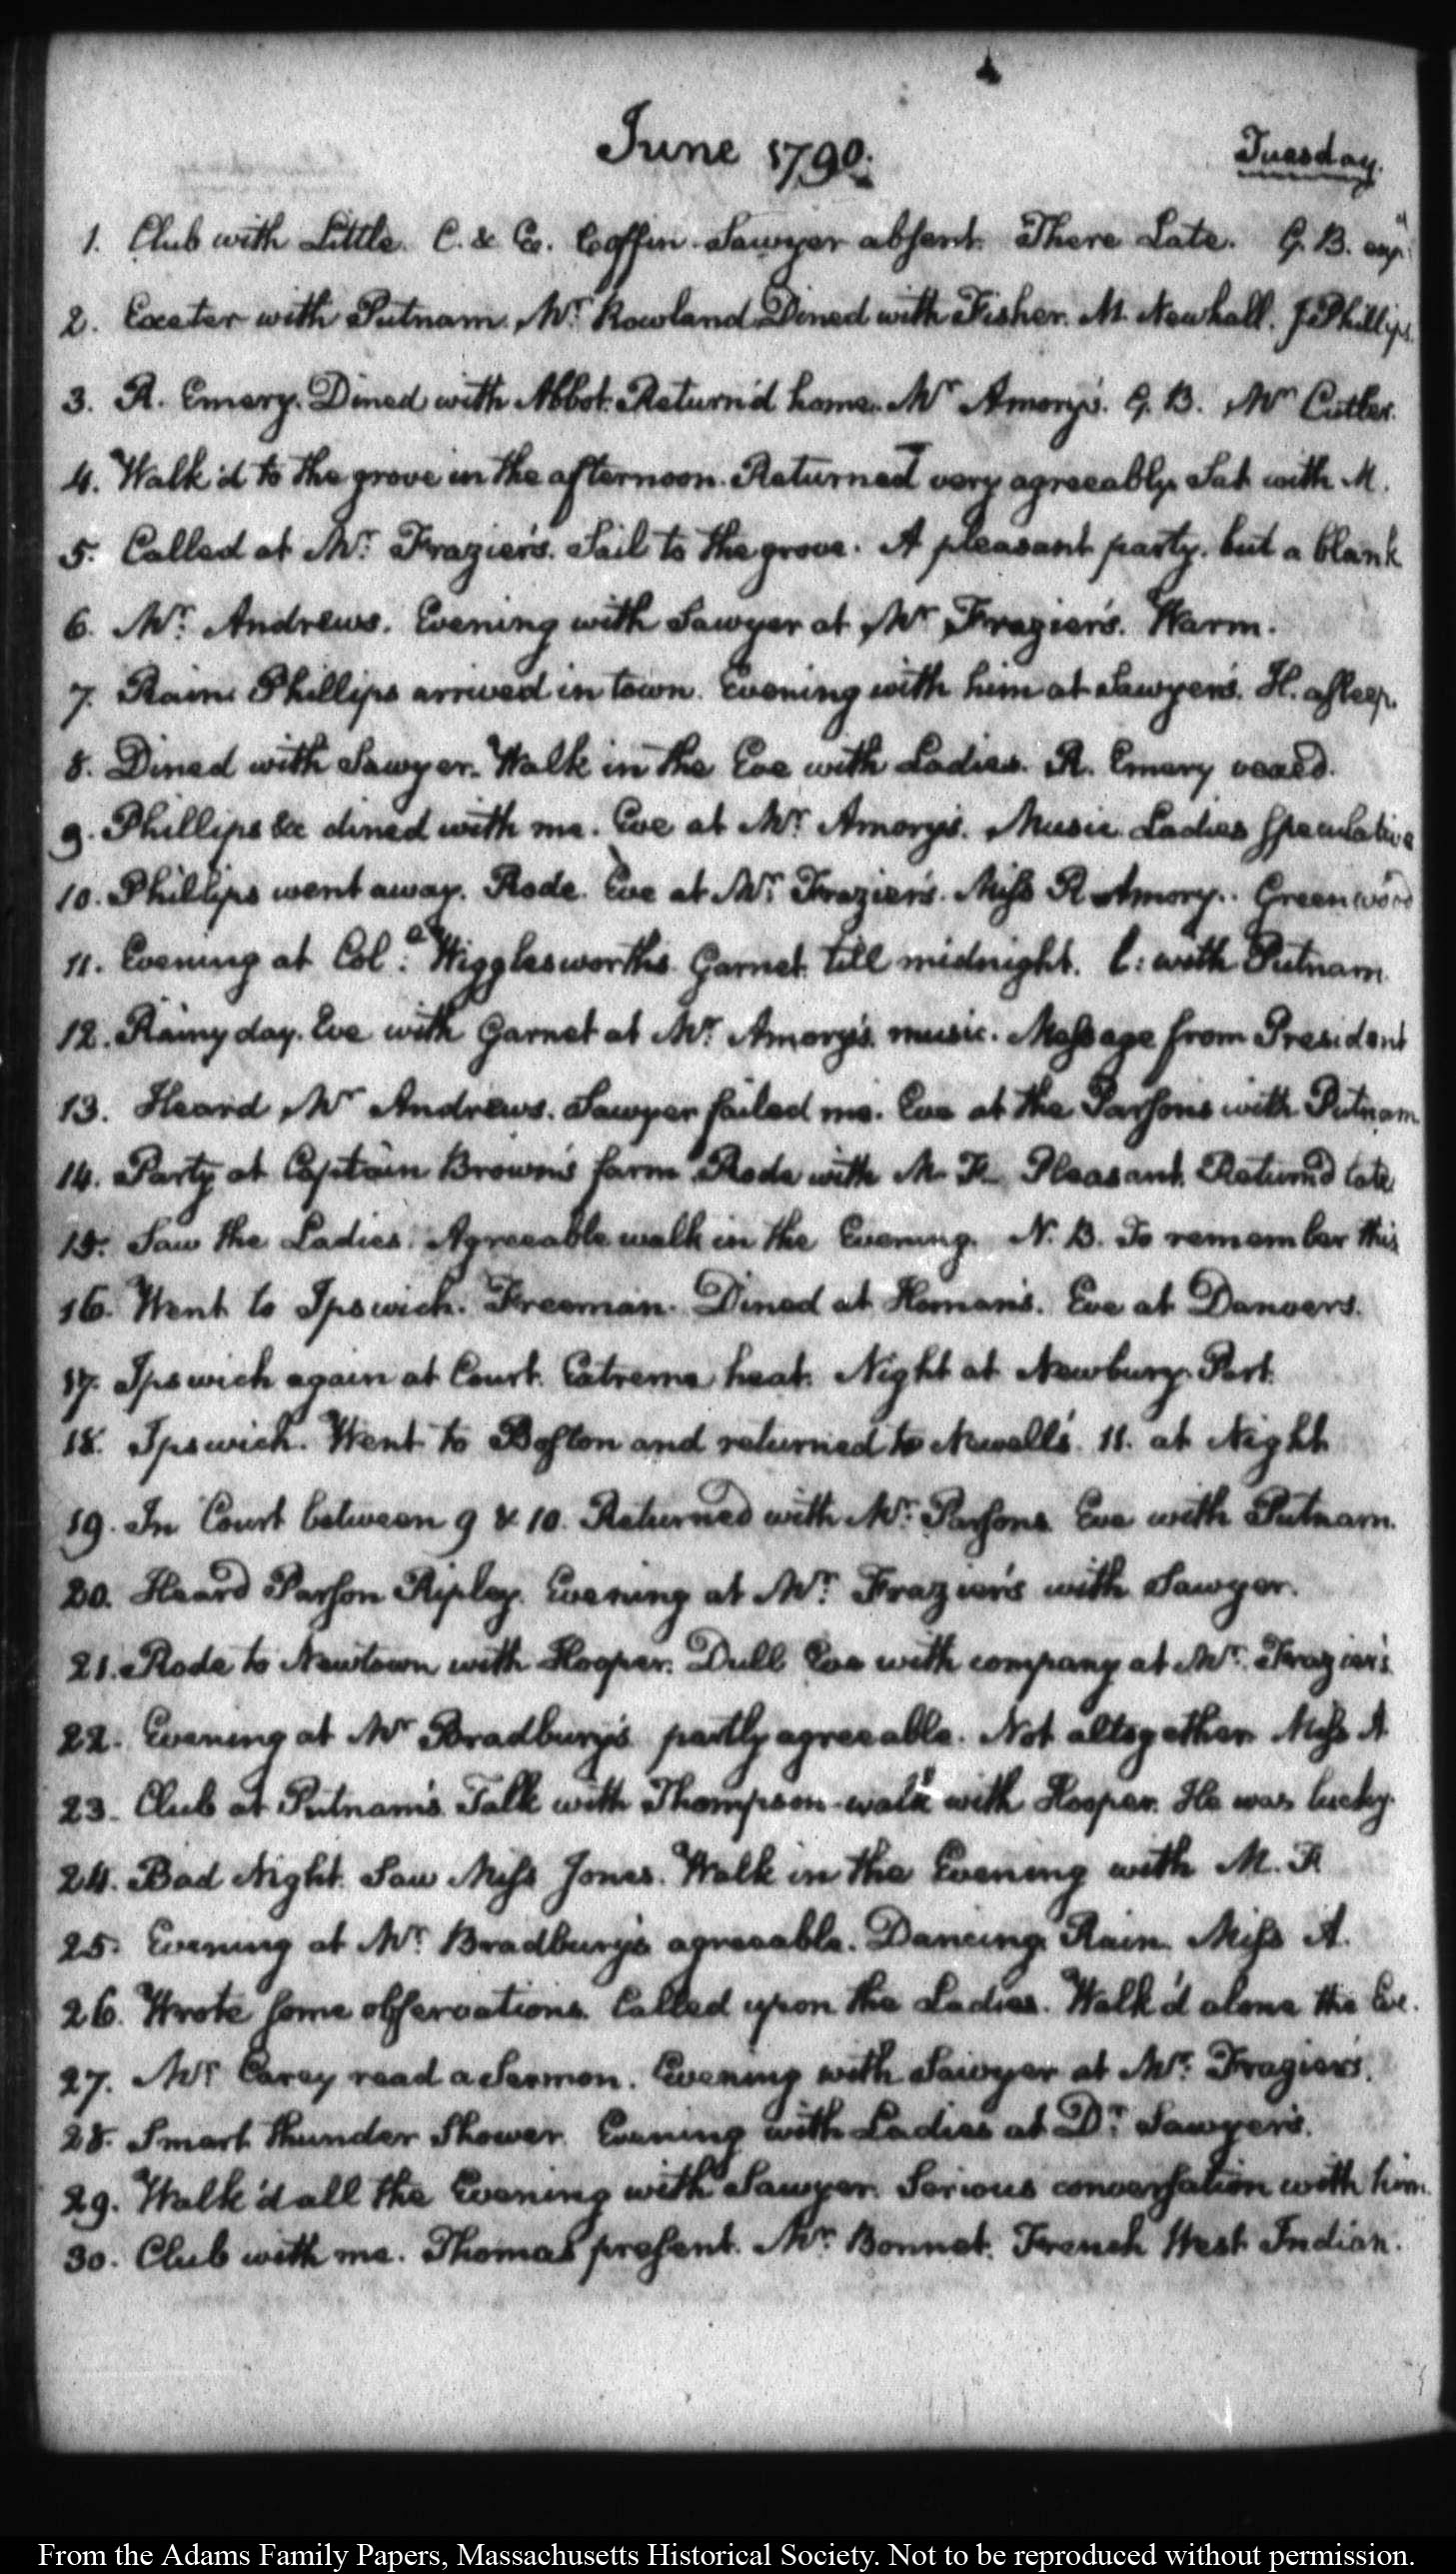 June 1790.
Tuesday.
1. Club with Little. C. & E. Coffin. Sawyer absent. There Late. G. B.
2. Exeter with Putnam. Mr. Rowland Dined with Fisher. M. Newhall. J Phillips
3. R. Emery. Dined with Abbot. Return'd home. Mr Amory's. G. B. Mr Cutler.
4. Walk'd to the grove in the afternoon. Returned very agreeably. Sat with M.
5. Called at Mr. Frazier's. Sail to the grove. A pleasant party. but a blank
6. Mr. Andrews. Evening with Sawyer at Mr Frazier's. Warm.
7. Rain. Phillips arrived in town. Evening with him at Sawyer's. H. asleep.
8. Dined with Sawyer. Walk in the Eve with Ladies. R. Emery vexed.
9. Phillips &c dined with me. Eve at Mr. Amory's. Music. Ladies speculative
10. Phillips went away. Rode. Eve at Mr. Frazier's. Miss R Amory. Greenwood
11. Evening at Col: Wigglesworths. Garnet till midnight. with Putnam.
12. Rainy day. Eve with Garnet at Mr. Amory's. music. Message from President
13. Heard Mr Andrews. Sawyer failed me. Eve at the Parsons with Putnam
14. Party at Captain Brown's farm Rode with M. F. Pleasant. Return'd late
15. Saw the Ladies. Agreeable walk in the Evening. N. B. To remember this
16. Went to Ipswich. Freeman. Dined at Homan's. Eve at Danvers.
17. Ipswich again at Court. Extreme heat. Night at Newbury-Port.
18. Ipswich. Went to Boston and returned to Newell's. 11. at Night
19. In Court between 9 & 10. Returned with Mr. Parsons. Eve with Putnam.
20. Heard Parson Ripley. Evening at Mr. Frazier's with Sawyer.
21. Rode to Newtown with Hooper. Dull Eve with company at Mr. Frazier's
22. Evening at Mr Bradbury's partly agreeable. Not altogether. Miss A
23. Club at Putnam's. Talk with Thompson walk with Hooper. He was lucky.
24. Bad Night. Saw Miss Jones. Walk in the Evening with M. F.
25. Evening at Mr. Bradbury's agreeable. Dancing. Rain. Miss A.
26. Wrote some observations. Called upon the Ladies. Walk'd alone the Eve.
27. Mr Carey read a Sermon. Evening with Sawyer at Mr. Frazier's.
28. Smart thunder Shower. Evening with Ladies at Dr. Sawyer's.
29. Walk'd all the Evening with Sawyer. Serious conversation with him.
30. Club with me. Thomas present. Mr. Bonnet. French West Indian.
From the Adams Family Papers, Massachusetts Historical Society. Not to be reproduced without permission.